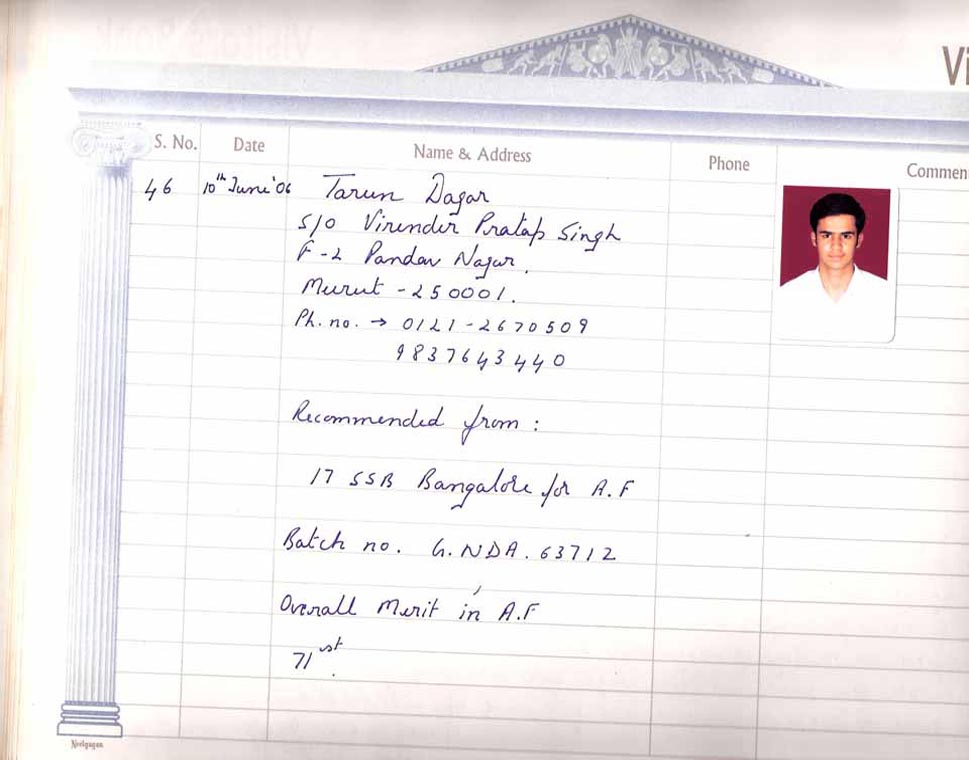 Visitors Book
Vi
S. No.
Date
Name & Address
Phone
Commen
46
10th June '06
Tarun Dagar
S/O Virender Pratap Singh
F-2 Pandav Nagar.
Meerut - 250001.
Ph. no. → 0121-2670509
9837643440
Recommended from :
17 SSB Bangalore for A.F
Batch no. G.NDA.63712
Overall Merit in A.F
71st.
Neelgagan